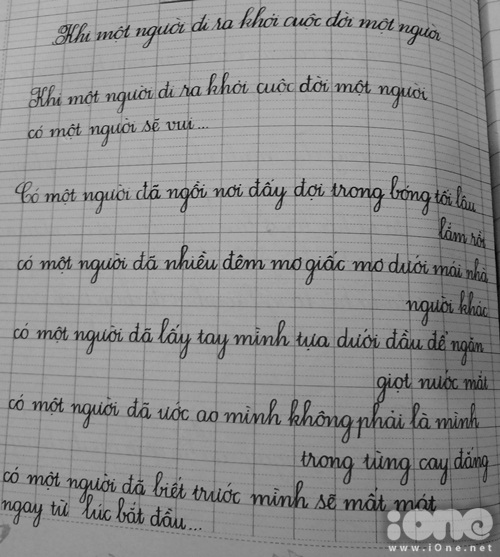 Khi một người đi ra khỏi cuộc đời một người
Khi một người đi ra khỏi cuộc đời một người
có một người sẽ vui...
Có một người đã ngồi nơi đấy đợi trong bóng tối lâu
lắm rồi
có một người đã nhiều đêm mơ giấc mơ dưới mái nhà
người khác
có một người đã lấy tay mình tựa dưới đầu để ngăn
giọt nước mắt
có một người đã ước ao mình không phải là mình
trong từng cay đắng
có một người đã biết trước mình sẽ mất mát
ngay từ lúc bắt đầu...
iOne
www.iOne.net